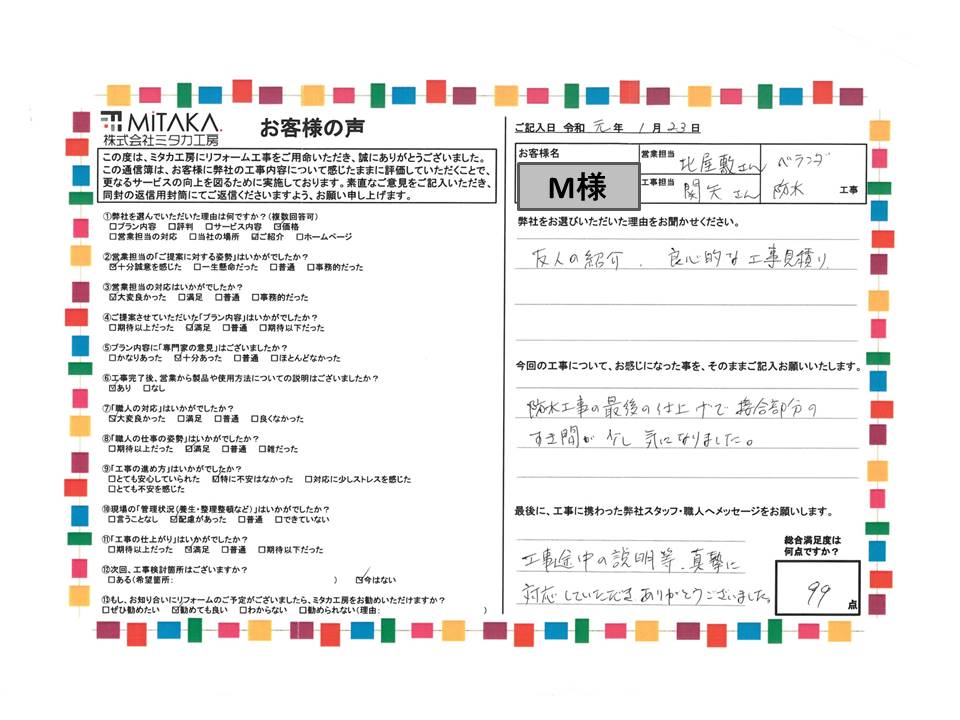 MiTAKA.
株式会社ミタカ工房
お客様の声
この度は、ミタカ工房にリフォーム工事をご用命いただき、誠にありがとうございました。
この通信簿は、お客様に弊社の工事内容について感じたままに評価していただくことで、
更なるサービスの向上を図るために実施しております。素直なご意見をご記入いただき、
同封の返信用封筒にてご返信くださいますよう、お願い申し上げます。
①弊社を選んでいただいた理由は何ですか？(複数回答可)
□プラン内容 □評判 □サービス内容 ☑価格
□営業担当の対応 □当社の場所 ☑ご紹介 □ホームページ
②営業担当の「ご提案に対する姿勢」はいかがでしたか？
☑十分誠意を感じた □一生懸命だった □普通 □事務的だった
③営業担当の対応はいかがでしたか？
☑大変良かった □満足 □普通 □事務的だった
④ご提案させていただいた「プラン内容」はいかがでしたか？
□期待以上だった ☑満足 □普通 □期待以下だった
⑤プラン内容に「専門家の意見」はございましたか？
□かなりあった ☑十分あった □普通 □ほとんどなかった
⑥工事完了後、営業から製品や使用方法についての説明はございましたか？
☑あり □なし
⑦「職人の対応」はいかがでしたか？
☑大変良かった □満足 □普通 □良くなかった
⑧「職人の仕事の姿勢」はいかがでしたか？
□期待以上だった ☑満足 □普通 □雑だった
⑨「工事の進め方」はいかがでしたか？
□とても安心していられた ☑特に不安はなかった □対応に少しストレスを感じた
□とても不安を感じた
⑩現場の「管理状況(養生・整理整頓など)」はいかがでしたか？
□言うことなし ☑配慮があった □普通 □できていない
⑪「工事の仕上がり」はいかがでしたか？
□期待以上だった ☑満足 □普通 □期待以下だった
⑫次回、工事検討箇所はございますか？
□ある(希望箇所: ) ☑今はない
⑬もし、お知り合いにリフォームのご予定がございましたら、ミタカ工房をお勧めいただけますか？
□ぜひ勧めたい ☑勧めても良い □わからない □勧められない(理由: )
ご記入日 令和 元 年 1 月 23 日
お客様名
M様
営業担当 北屋敷さん
工事担当 関矢さん
ベランダ
防水 工事
弊社をお選びいただいた理由をお聞かせください。
友人の紹介、良心的な工事見積り
今回の工事について、お感じになった事を、そのままご記入お願いいたします。
防水工事の最後の仕上げで接合部分の
すき間が少し気になりました。
最後に、工事に携わった弊社スタッフ・職人へメッセージをお願いします。
工事途中の説明等、真摯に
対応していただきありがとうございました。
総合満足度は
何点ですか？
99 点